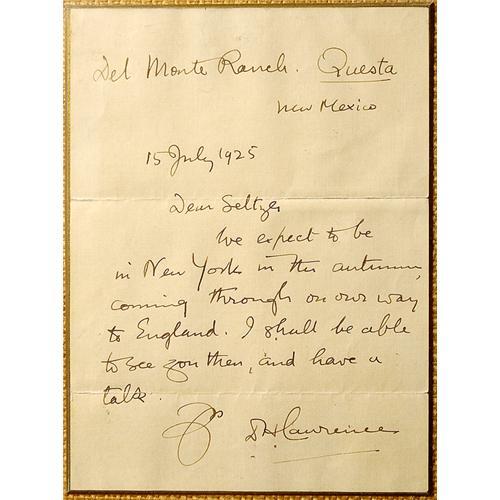 Del Monte Ranch. Questa
New Mexico
15 July 1925
Dear Seltzer
We expect to be
in New York in the autumn,
coming through on our way
to England. I shall be able
to see you then, and have a
talk.
D.H. Lawrence